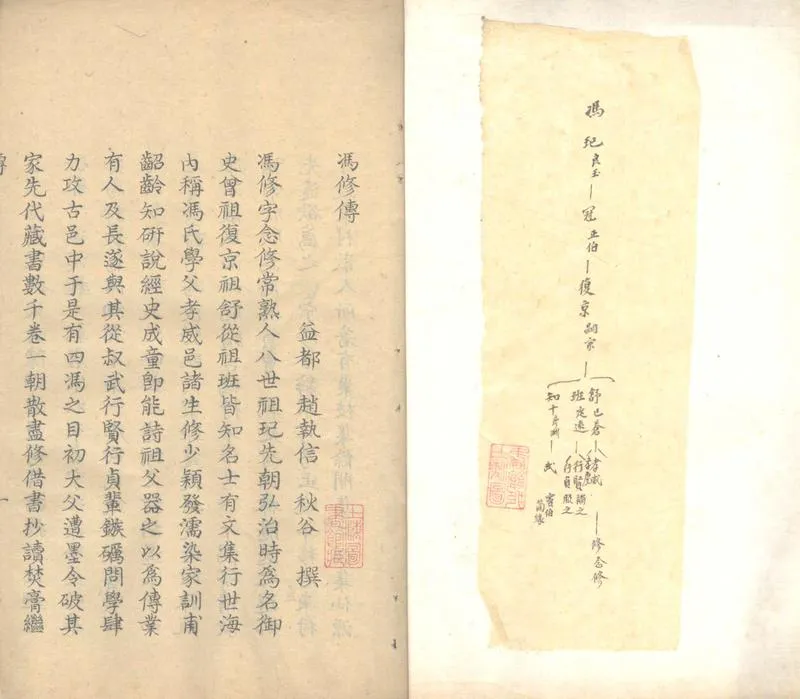 馮
玘良玉
冠正伯
復京嗣宗
舒已蒼
孝威
修念修
班定遠
行賢
行貞服之
知十
武
竇伯
簡緣
馮修傳
益都趙執信秋谷撰
馮修字念修常熟人八世祖玘先朝弘治時爲名御
史曾祖復京祖舒從祖班皆知名士有文集行世海
內稱馮氏學父孝威邑諸生修少穎發濡染家訓甫
齠齡知硏說經史成童卽能詩祖父器之以爲傳業
有人及長遂與其從叔武行賢行貞輩鏃礪問學肆
力攻古邑中于是有四馮之目初大父遭墨令破其
家先代藏書數千卷一朝散盡修借書抄讀焚膏繼